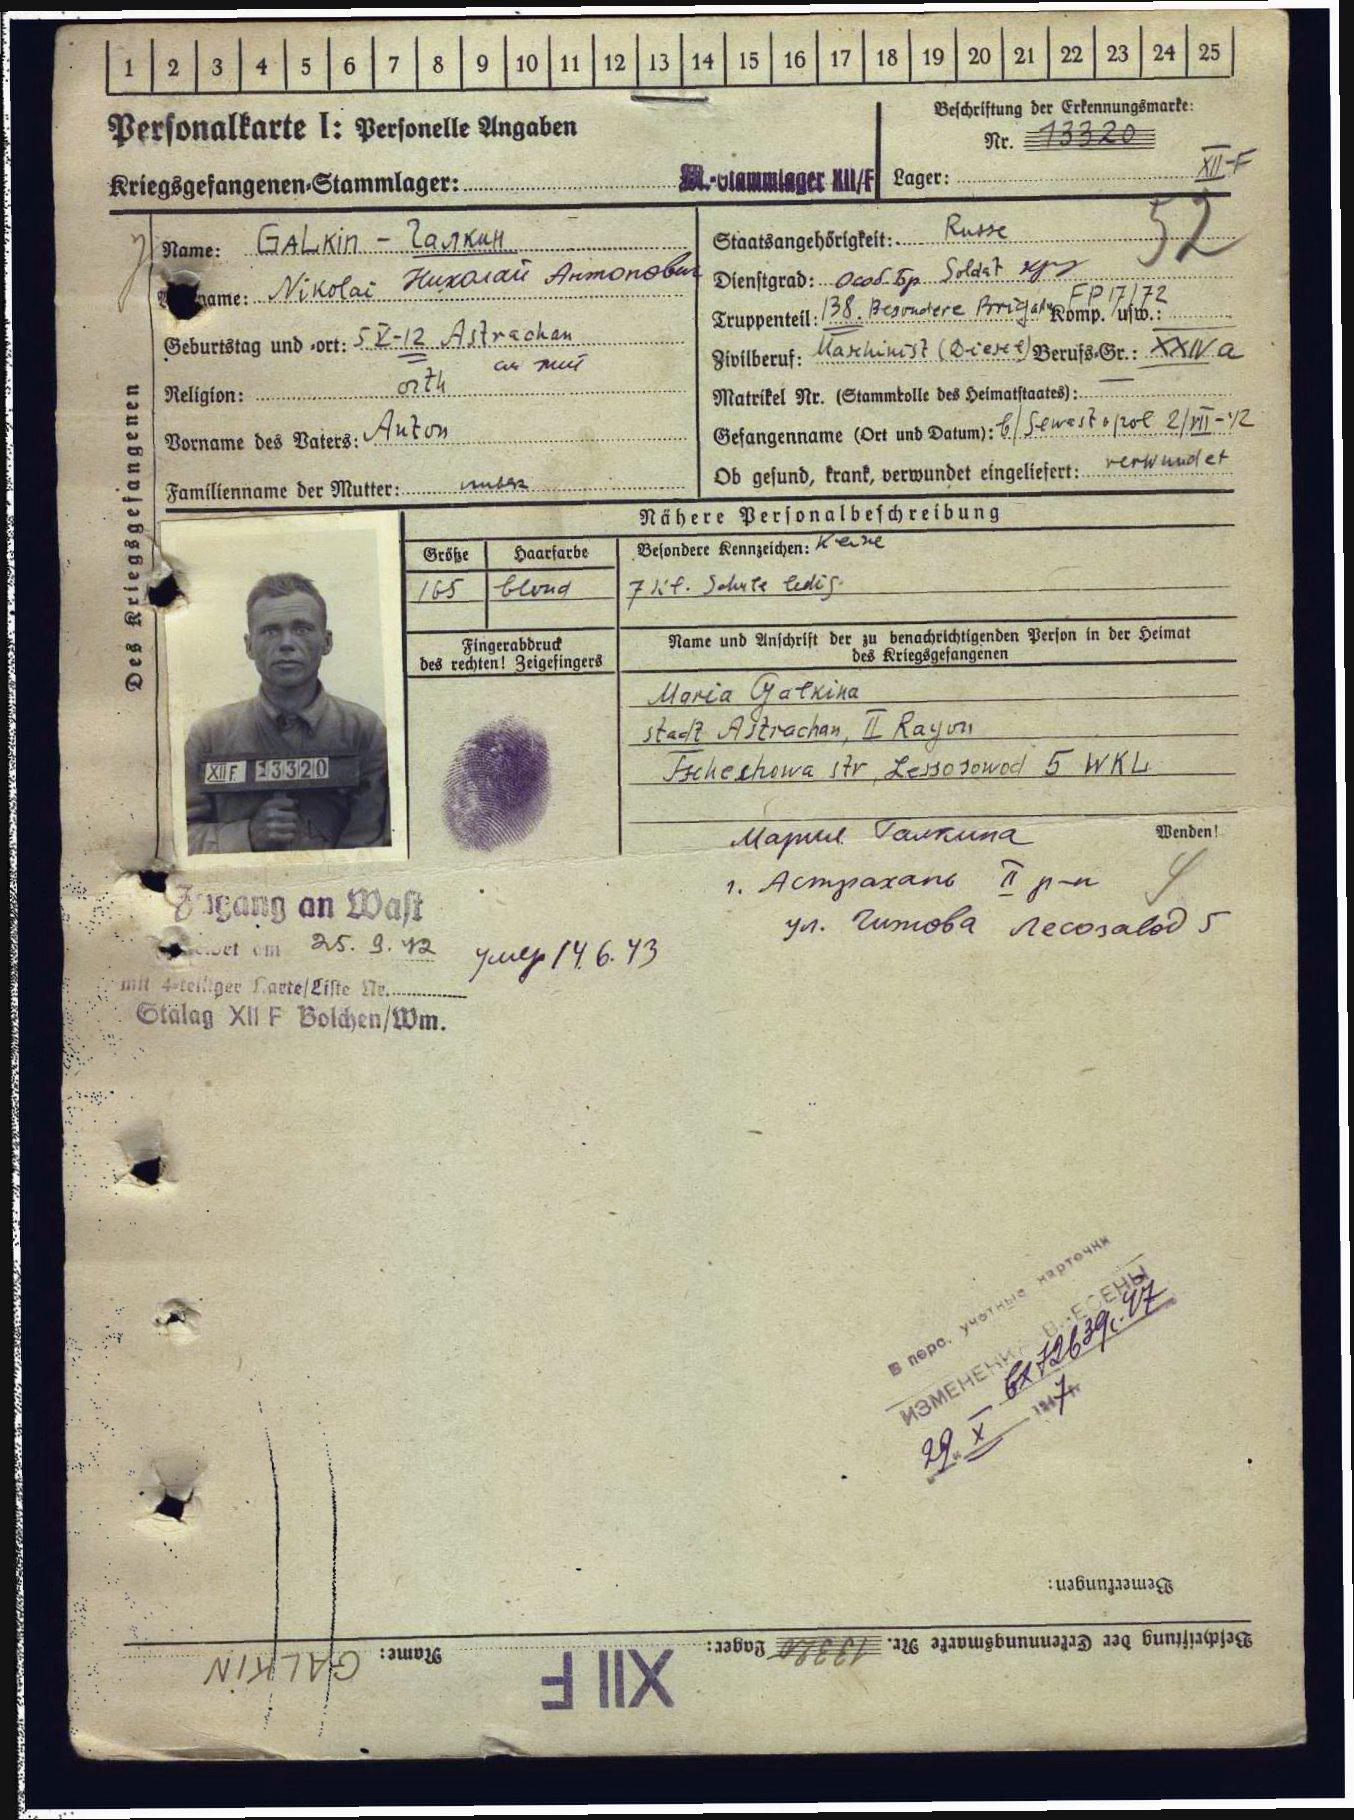 1 2 3 4 5 6 7 8 9 10 11 12 13 14 15 16 17 18 19 20 21 22 23 24 25
Personalkarte I: Personelle Angaben
Beschriftung der Erkennungsmarke:
Nr. 13320
Kriegsgefangenen-Stammlager: M.-Stammlager XII/F
Lager: XII-F
52
Des Kriegsgefangenen
Name: GALKIN - Галкин
Staatsangehörigkeit: Russe
name: Nikolai Николай Антонович
Dienstgrad: Особ. Бр Soldat
Truppenteil: 138. Besondere Brigade Komp. usw.: FP 17/72
Geburtstag und -ort: 5 V-12 Astrachan
Zivilberuf: Maschinist (Diesel) Berufs-Gr.: XXIV a
Religion: orth
Matrikel Nr. (Stammrolle des Heimatstaates): —
Vorname des Vaters: Anton
Gefangenname (Ort und Datum): b/ Sewastopol 2/VII-42
Familienname der Mutter:
Ob gesund, krank, verwundet eingeliefert: verwundet
Nähere Personalbeschreibung
Größe Haarfarbe
Besondere Kennzeichen: Keine
165 blond
7 Kl. Schule ledig.
Fingerabdruck
des rechten! Zeigefingers
Name und Anschrift der zu benachrichtigenden Person in der Heimat
des Kriegsgefangenen
Maria Galkina
stadt Astrachan, II Rayon
Tschechowa str, Lessosowod 5 WKL
XII F 13320
Wenden!
Мария Галкина
г. Астрахань II р-н
ул. Чихова Лесозавод 5
Zugang an Wast
gemeldet am 25. 9. 42
умер 14. 6. 43
mit 4-teiliger Karte/Liste Nr.
Stalag XII F Bolchen/Wm.
В перс. учетные карточки
ИЗМЕНЕНИЯ ВНЕСЕНЫ
вх 72639с-47
29. X 1947 г.
Bemerkungen:
Beschriftung der Erkennungsmarke Nr. 13320 Lager: XII F Name: GALKIN